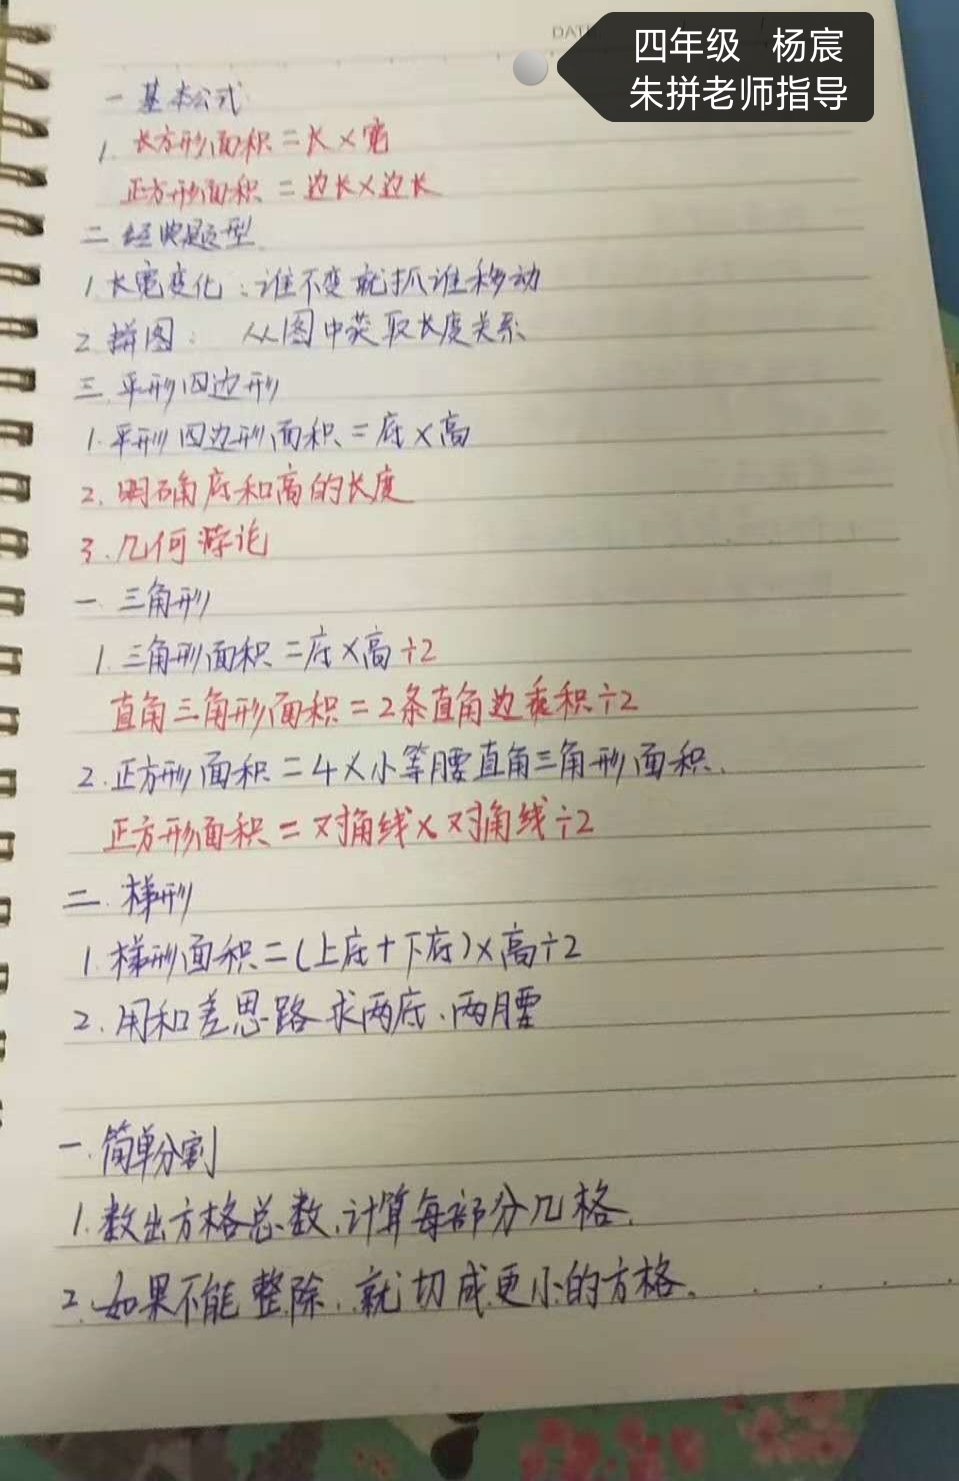 DATE
四年级 杨宸
朱拼老师指导
一 基本公式
1. 长方形面积=长×宽
正方形面积=边长×边长
二 经典题型
1 长宽变化:谁不变就抓谁移动
2 拼图: 从图中获取长度关系
三.平形四边形
1.平形四边形面积=底×高
2.明确底和高的长度
3.几何
一.三角形
1.三角形面积=底×高÷2
直角三角形面积=2条直角边乘积÷2
2.正方形面积=4×小等腰直角三角形面积.
正方形面积=对角线×对角线÷2
二.梯形
1.梯形面积=(上底+下底)×高÷2
2.用和差思路求两底、两腰
一.简单分割
1.数出方格总数,计算每部分几格.
2.如果不能整除,就切成更小的方格.